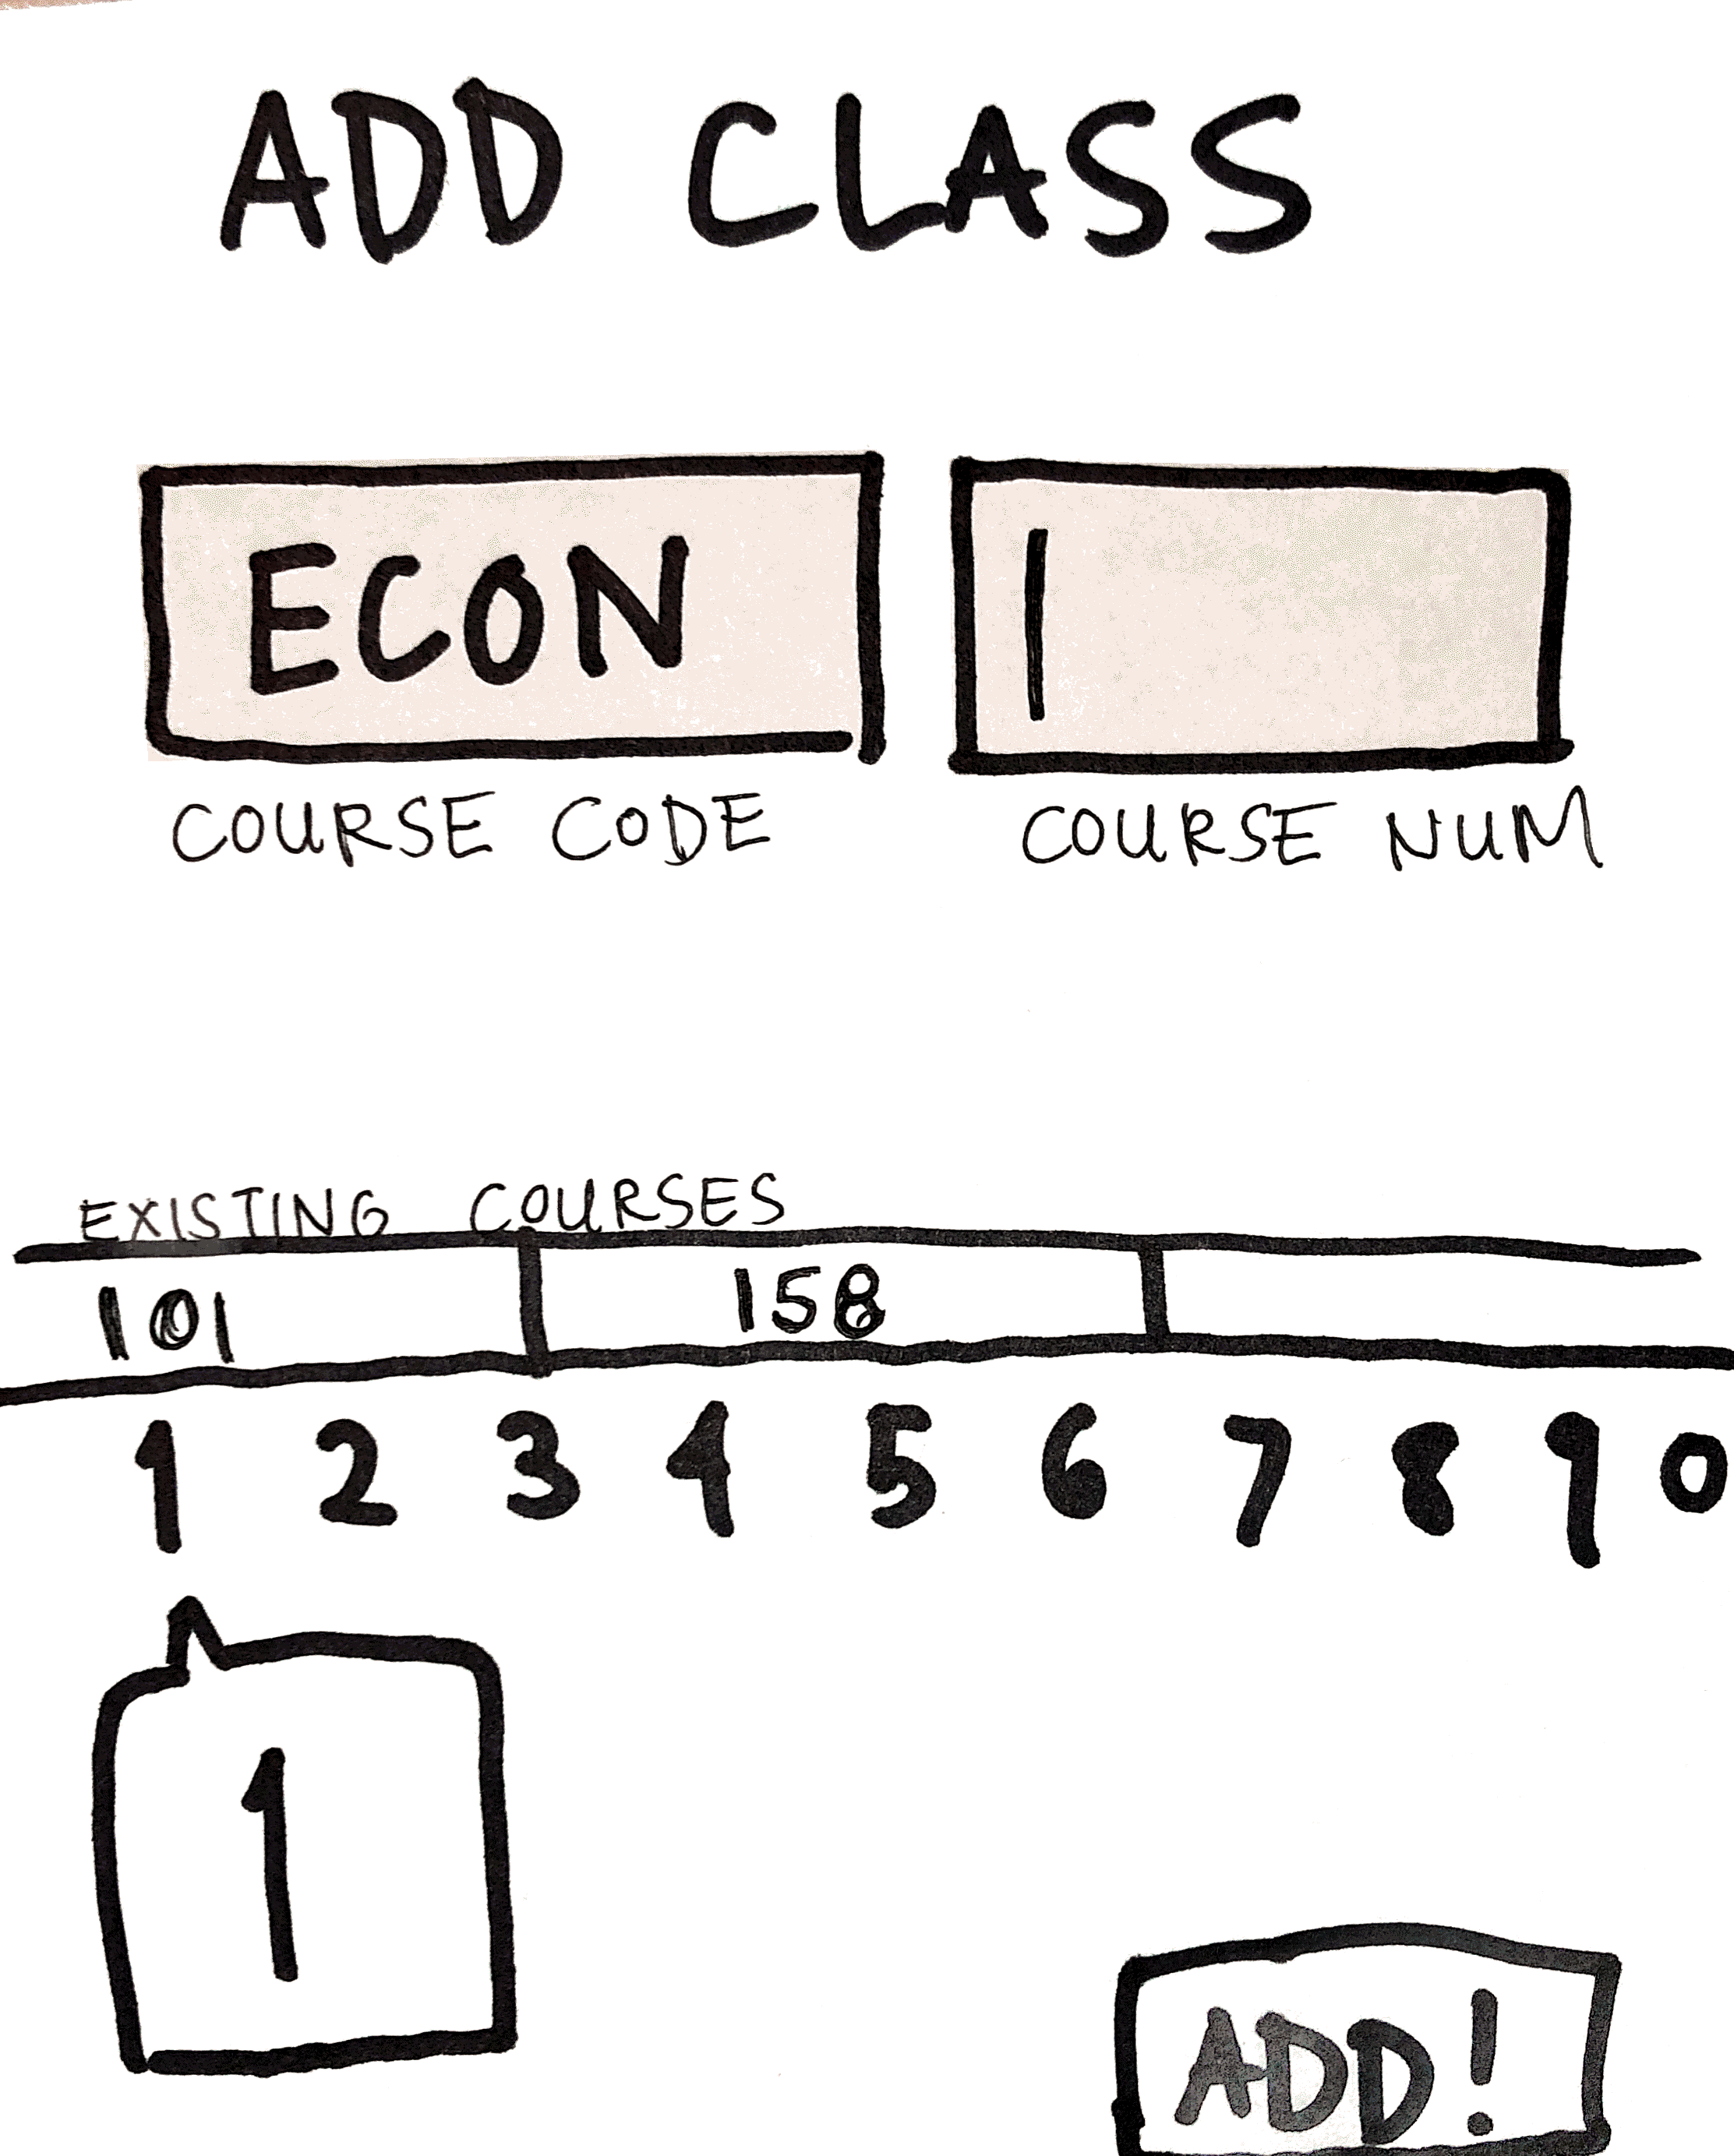 ADD CLASS
ECON
COURSE CODE COURSE NUM
EXISTING COURSES
101 158
1 2 3 4 5 6 7 8 9 0
1
ADD!